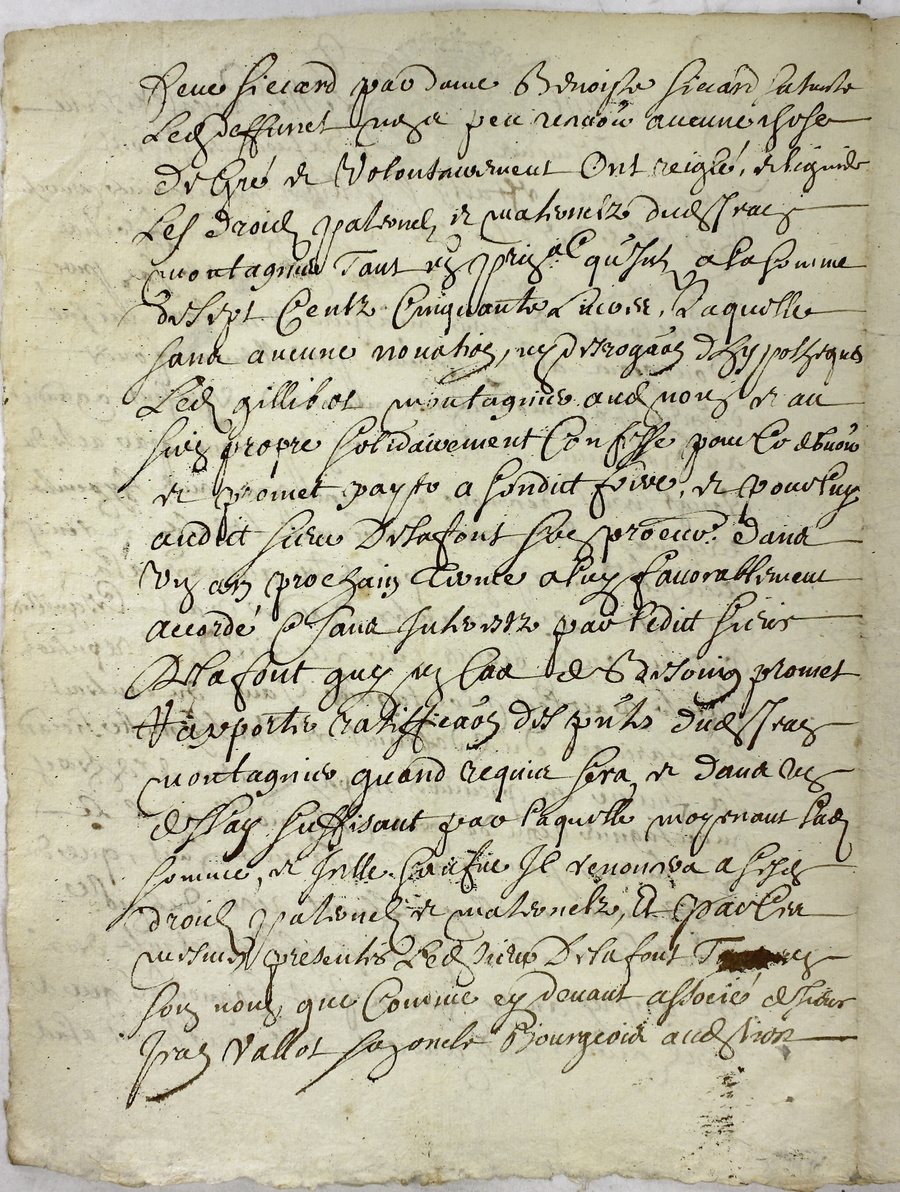 sieur sicard par dame Benoiste sicard sa tante
Led deffunct n'en a peu rendu aucune chose
De Gré et Volontairement Ont reiglé, et liquidé
Les droicts paternels et maternelz dud sr Jean
montagnier Tant en prinal qu'Intz a la somme
de sept Centz Cinquante Livres, Laquelle
sans aucune novation, ny desrogaon d'hypotheques
Led gillibert montagnier aud nom et au
sien propre solidairement Confesse pour Ce debvoir
et promet payer a sondict frere, et pour luy
audict sieur Delafont son procur. dans
Un an prochain Terme a luy favorablement
accordé Et sans Interestz par ledict sieur
Delafont quy en Cas de Besoing promet
Rapporter ratifficaon des pntes dud sr Jean
montagnier quand requis sera, et dans un
deslay suffisant par laquelle moyenant lad
somme, et Icelle saufve Il renoncera a sesd
droicts paternels et maternelz, Et par Ces
mesmes presentes Led sieur Delafont
son nom que Comme cy devant associé de sieur
Jean Vallot son oncle Bourgeois aud Lion